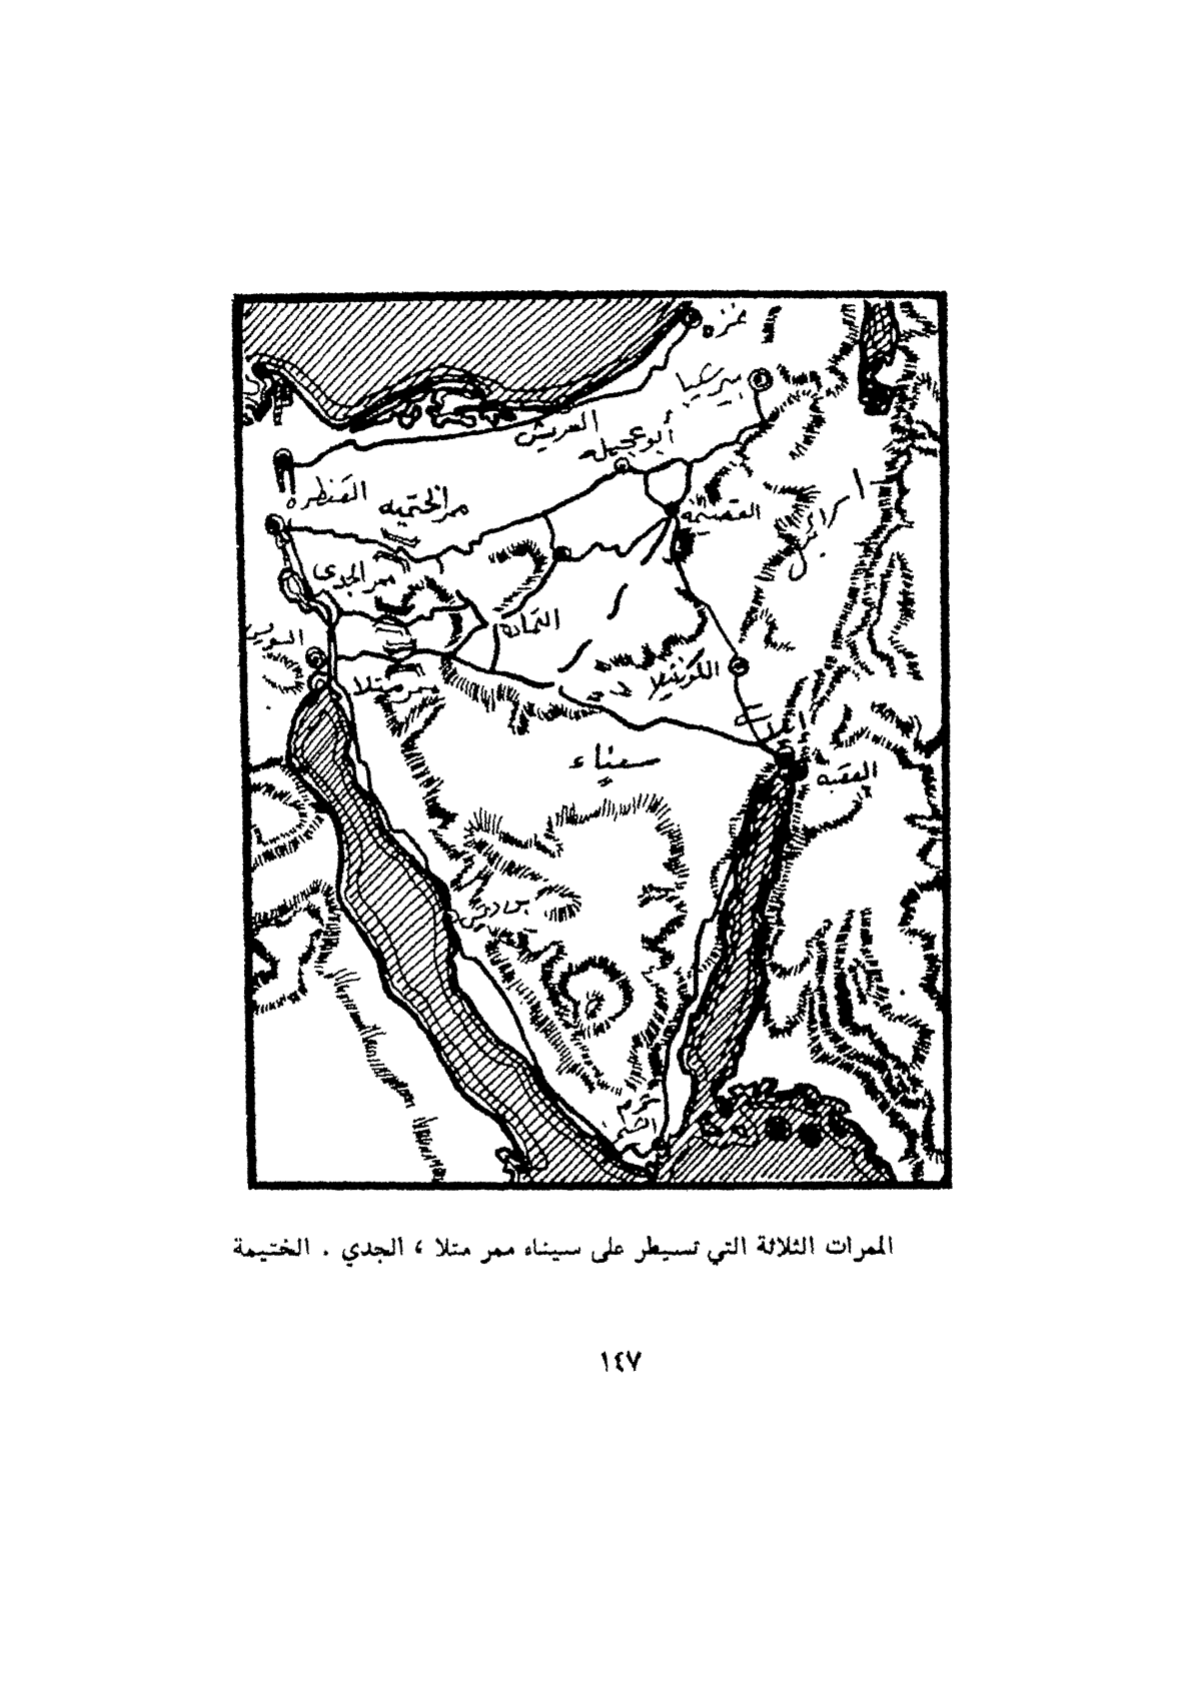 غزه
بيرعيا
العريش
أبوعجيله
القنطره
ممر الختميه
القصيمه
اسرائيل
ممر الجدى
التماده
السويس
الكونتيلا
ممر متلا
ايلات
سيناء
العقبه
شرم
الشيخ
الممرات الثلاثة التي تسيطر على سيناء ممر متلا ، الجدي . الختيمة
١٤٧